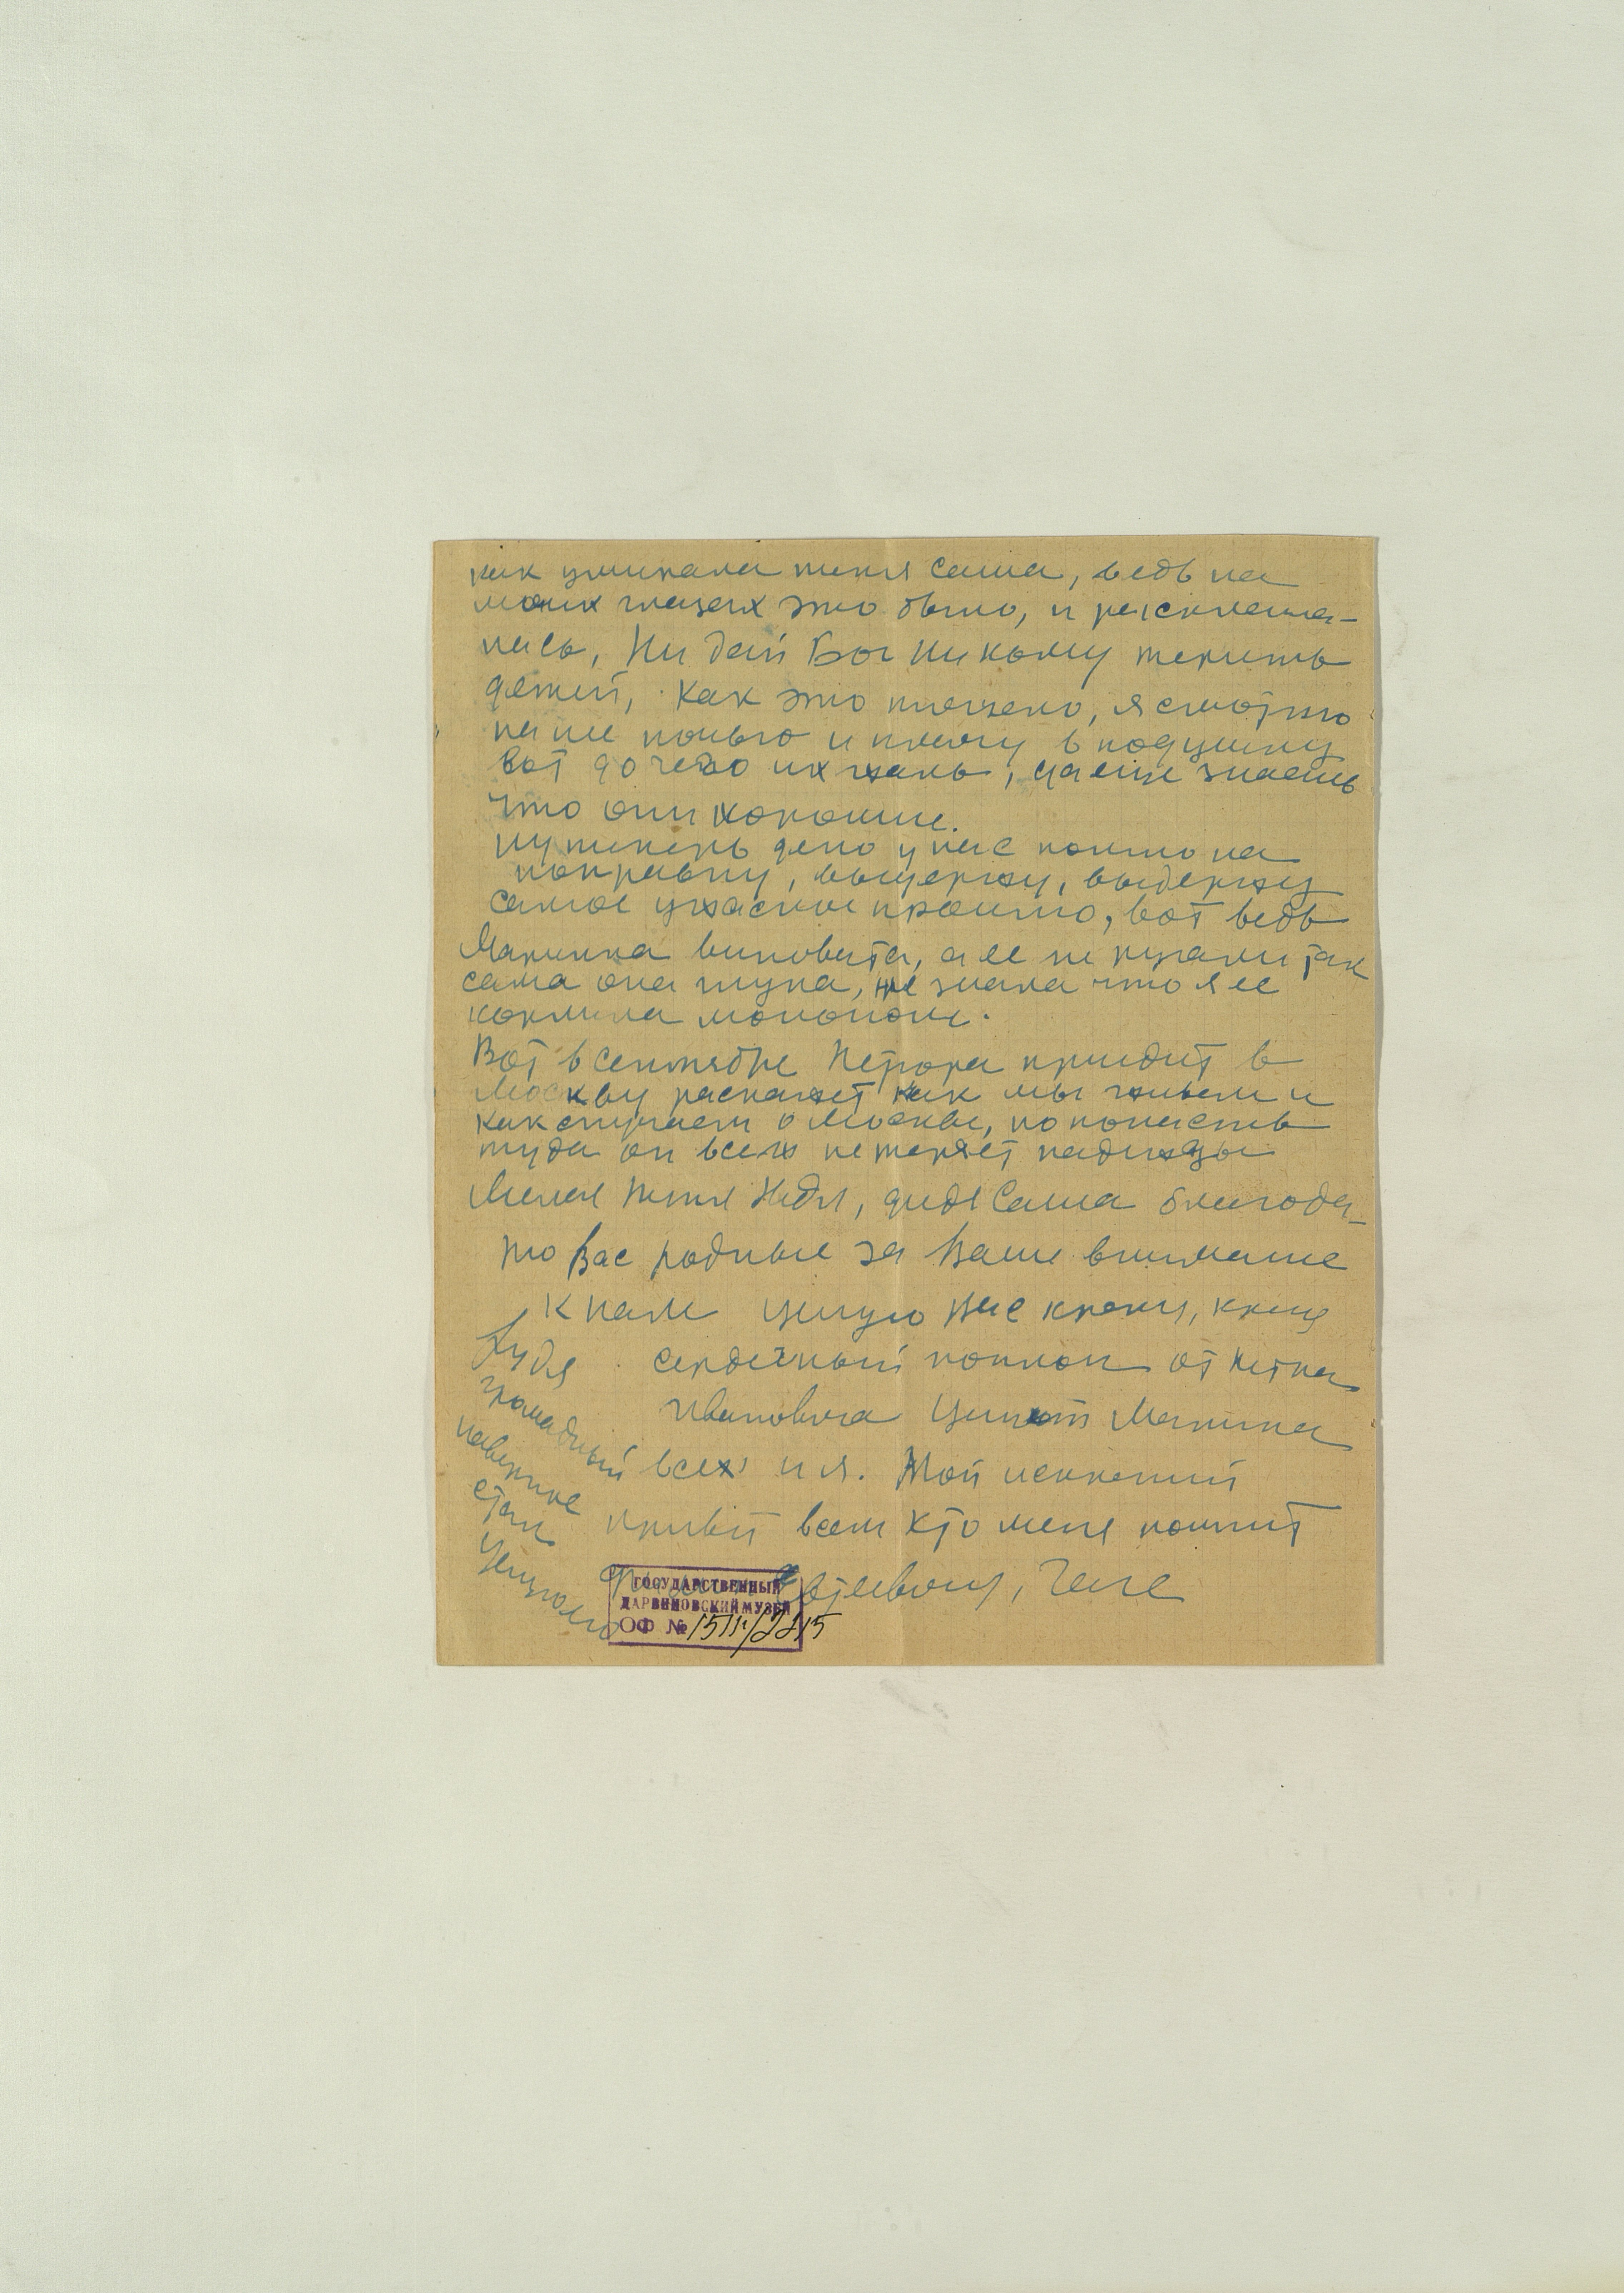 как умирала тетя Саша, ведь на
моих глазах это было, и расклеила-
лась, Ни дай Бог никому терять
детей, Как это тяжело, я смотрю
на нее ночью и плачу в подушку
вот до чего их жаль, да еще знаешь
что они хорошие.
Ну теперь дело у нас пошло на
поправку, выдержу, выдержу
самое ужасное прошло, вот ведь
Маринка виновата, а ее не ругали так
сама она глупа, не знала что я ее
кормила молоком.
Вот в сентябре Петрора приидит в
Москву раскажет как мы живем и
как скучаем о Москве, но попасть
туда он всеж не теряет надежды
Милая тетя Надя, дядя Саша благода-
рю Вас родные за Ваше внимание
к нам целую Вас крепко, крепко
сердечный поклон от Петра
Ивановича Целует Марина
всех и я. Мой искренний
привет всем кто меня помнит
Евгеевону, Гале
Лидя
громадный
наверное
стал
целую его
ГОСУДАРСТВЕННЫЙ
ДАРВИНОВСКИЙ МУЗЕЙ
ОФ №